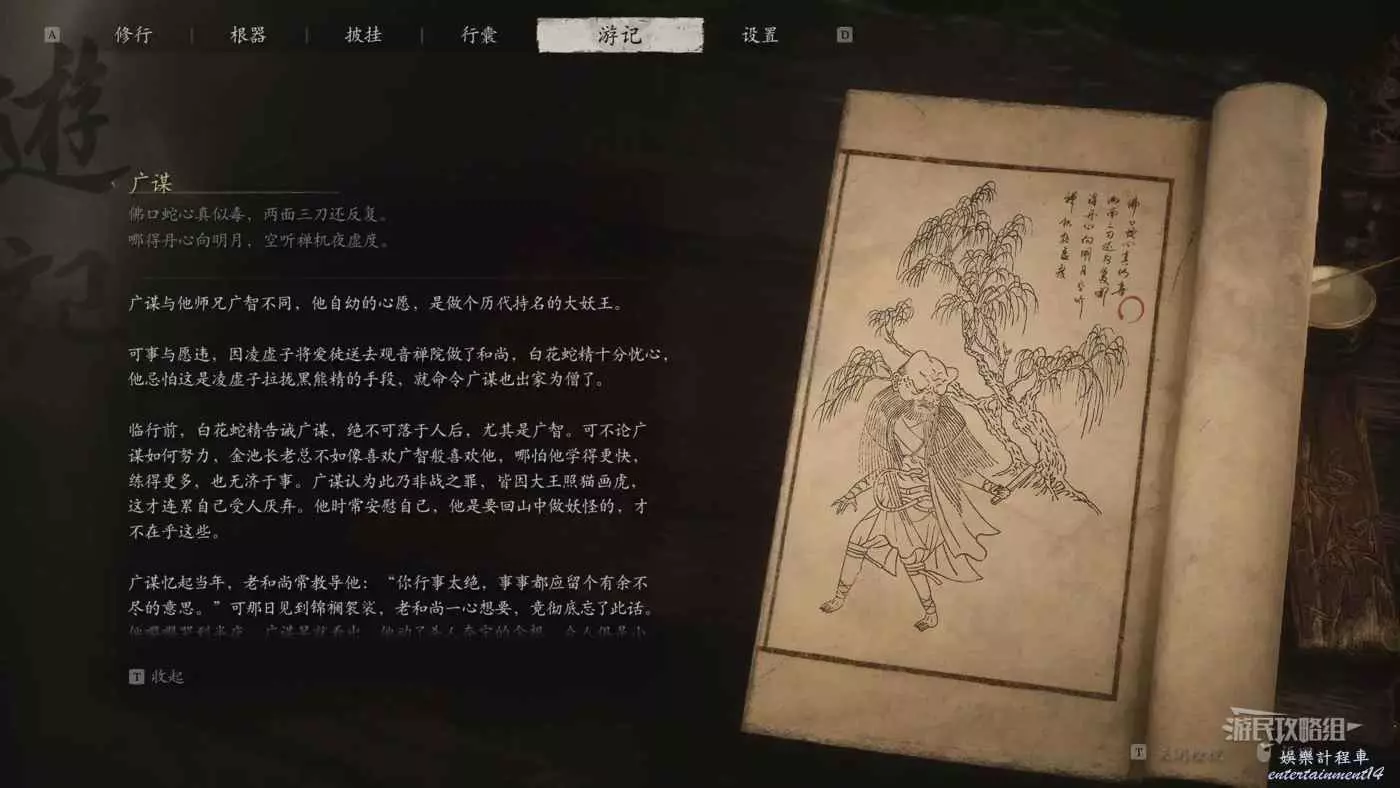 A
修行
根器
披挂
行囊
游记
设置
D
遊
记
广谋
佛口蛇心真似毒，两面三刀还反复。
哪得丹心向明月，空听禅机夜虚度。
广谋与他师兄广智不同，他自幼的心愿，是做个历代持名的大妖王。
可事与愿违，因凌虚子将爱徒送去观音禅院做了和尚，白花蛇精十分忧心，
他忌怕这是凌虚子拉拢黑熊精的手段，就命令广谋也出家为僧了。
临行前，白花蛇精告诫广谋，绝不可落于人后，尤其是广智。可不论广
谋如何努力，金池长老总不如像喜欢广智般喜欢他，哪怕他学得更快，
练得更多，也无济于事。广谋认为此乃非战之罪，皆因大王照猫画虎，
这才连累自己受人厌弃。他时常安慰自己，他是要回山中做妖怪的，才
不在乎这些。
广谋忆起当年，老和尚常教导他：“你行事太绝，事事都应留个有余不
尽的意思。”可那日见到锦襕袈裟，老和尚一心想要，竟彻底忘了此话。
T 收起
佛口蛇心真似毒
两面三刀还反复哪
得丹心向明月空听
禅机夜虚度
T
游民攻略组
娱樂計程車
entertainment14